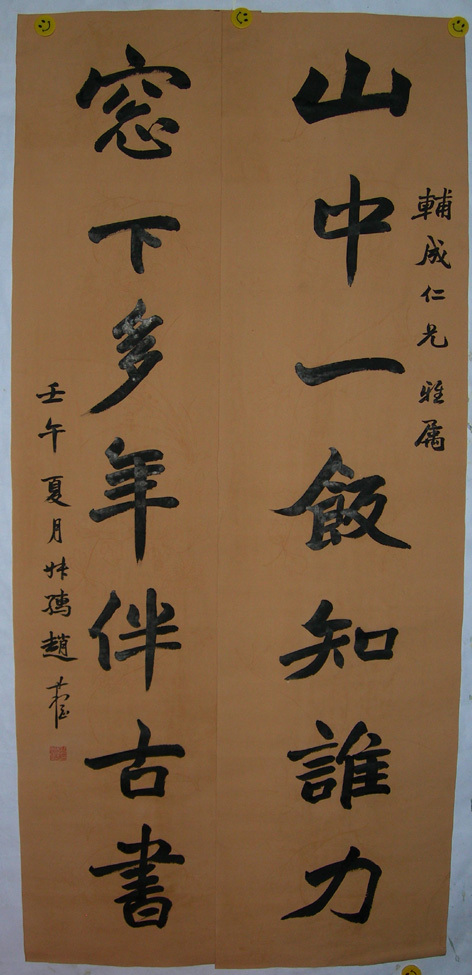 輔成仁兄 雅属
山中一飯知誰力
窓下多年伴古書
壬午夏月叔孺趙